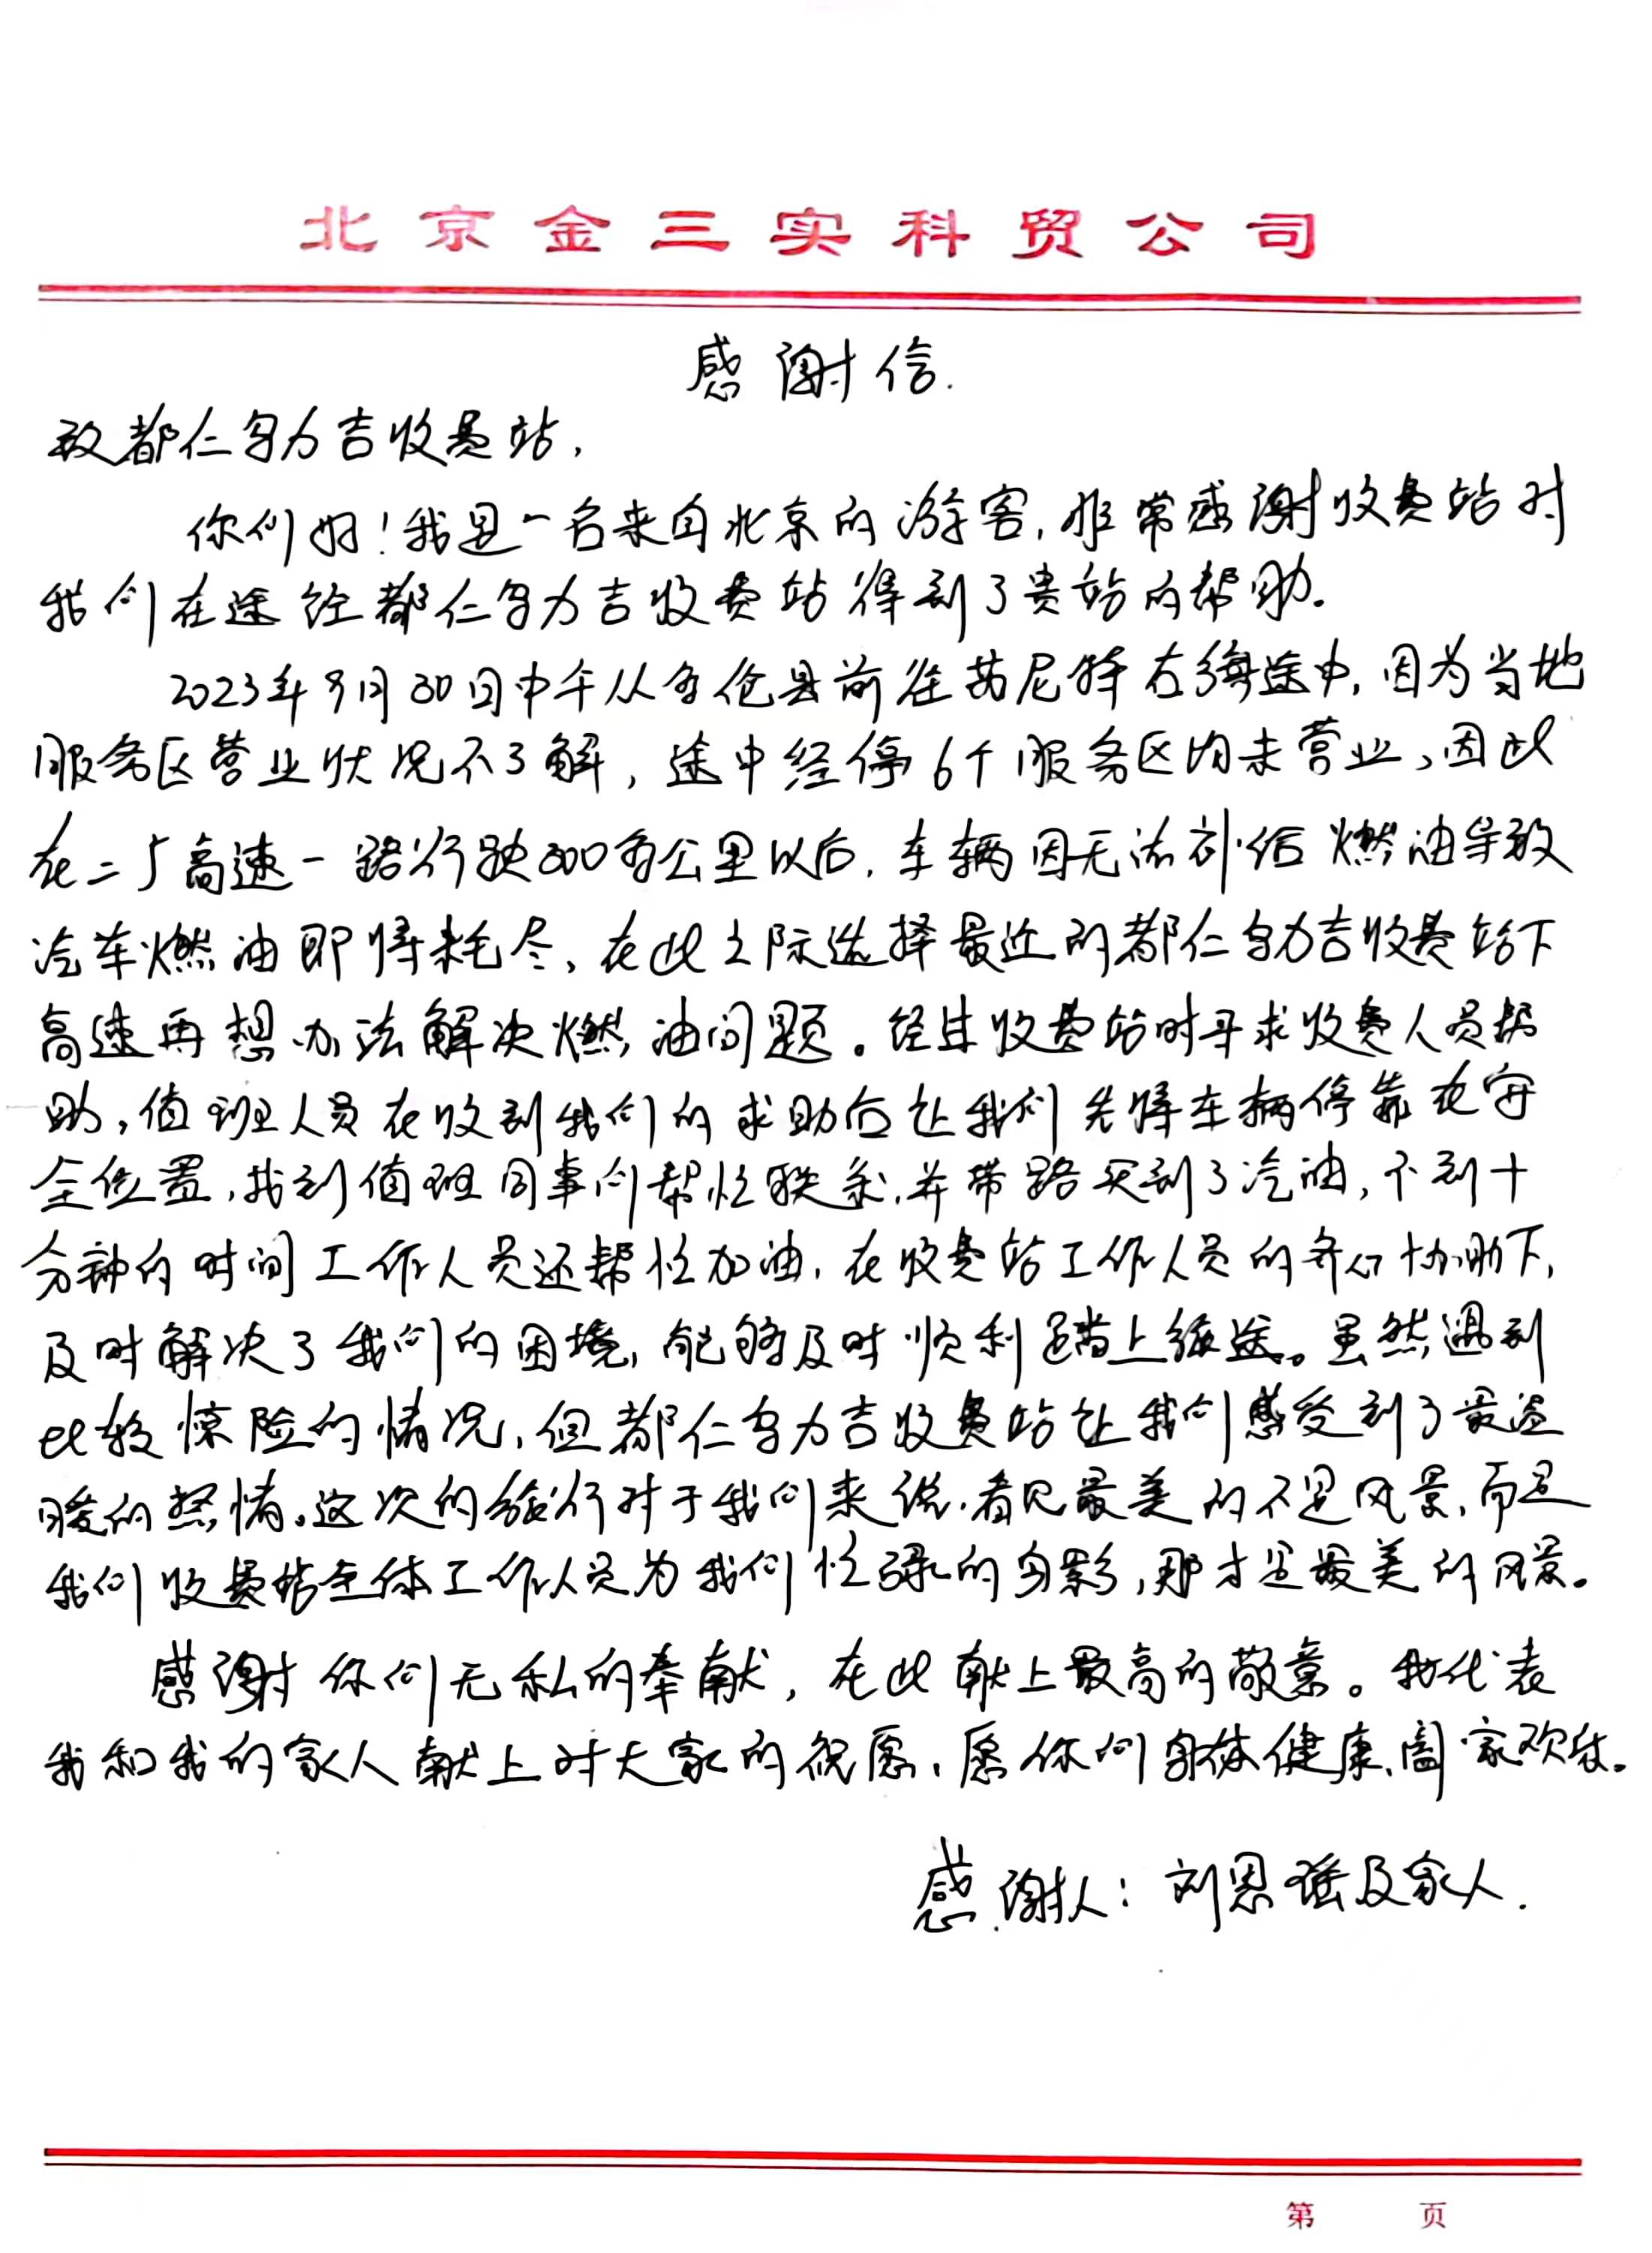 北京金三实科贸公司
感谢信.
致都仁乌力吉收费站,
你们好!我是一名来自北京的游客,非常感谢收费站对
我们在途经都仁乌力吉收费站得到了贵站的帮助。
2023年9月30日中午从多伦县前往苏尼特右旗途中,因为当地
服务区营业状况不了解,途中经停6个服务区均未营业,因此
在二广高速一路行驶300多公里以后,车辆因无法补给燃油导致
汽车燃油即将耗尽,在此之际选择最近的都仁乌力吉收费站下
高速再想办法解决燃油问题。经过收费站时寻求收费人员帮
助,值班人员在收到我们的求助后让我们先将车辆停靠在安
全位置,找到值班同事们帮忙联系,并带路买到了汽油,不到十
分钟的时间工作人员还帮忙加油,在收费站工作人员的齐心协助下,
及时解决了我们的困境,能够及时顺利踏上旅途。虽然遇到
比较惊险的情况,但都仁乌力吉收费站让我们感受到了最温
暖的热情。这次的旅行对于我们来说,看见最美的不是风景,而是
我们收费站全体工作人员为我们忙碌的身影,那才是最美的风景。
感谢你们无私的奉献,在此献上最高的敬意。我代表
我和我的家人献上对大家的祝愿,愿你们身体健康,阖家欢乐。
感谢人:刘恩瑶及家人.
第 页